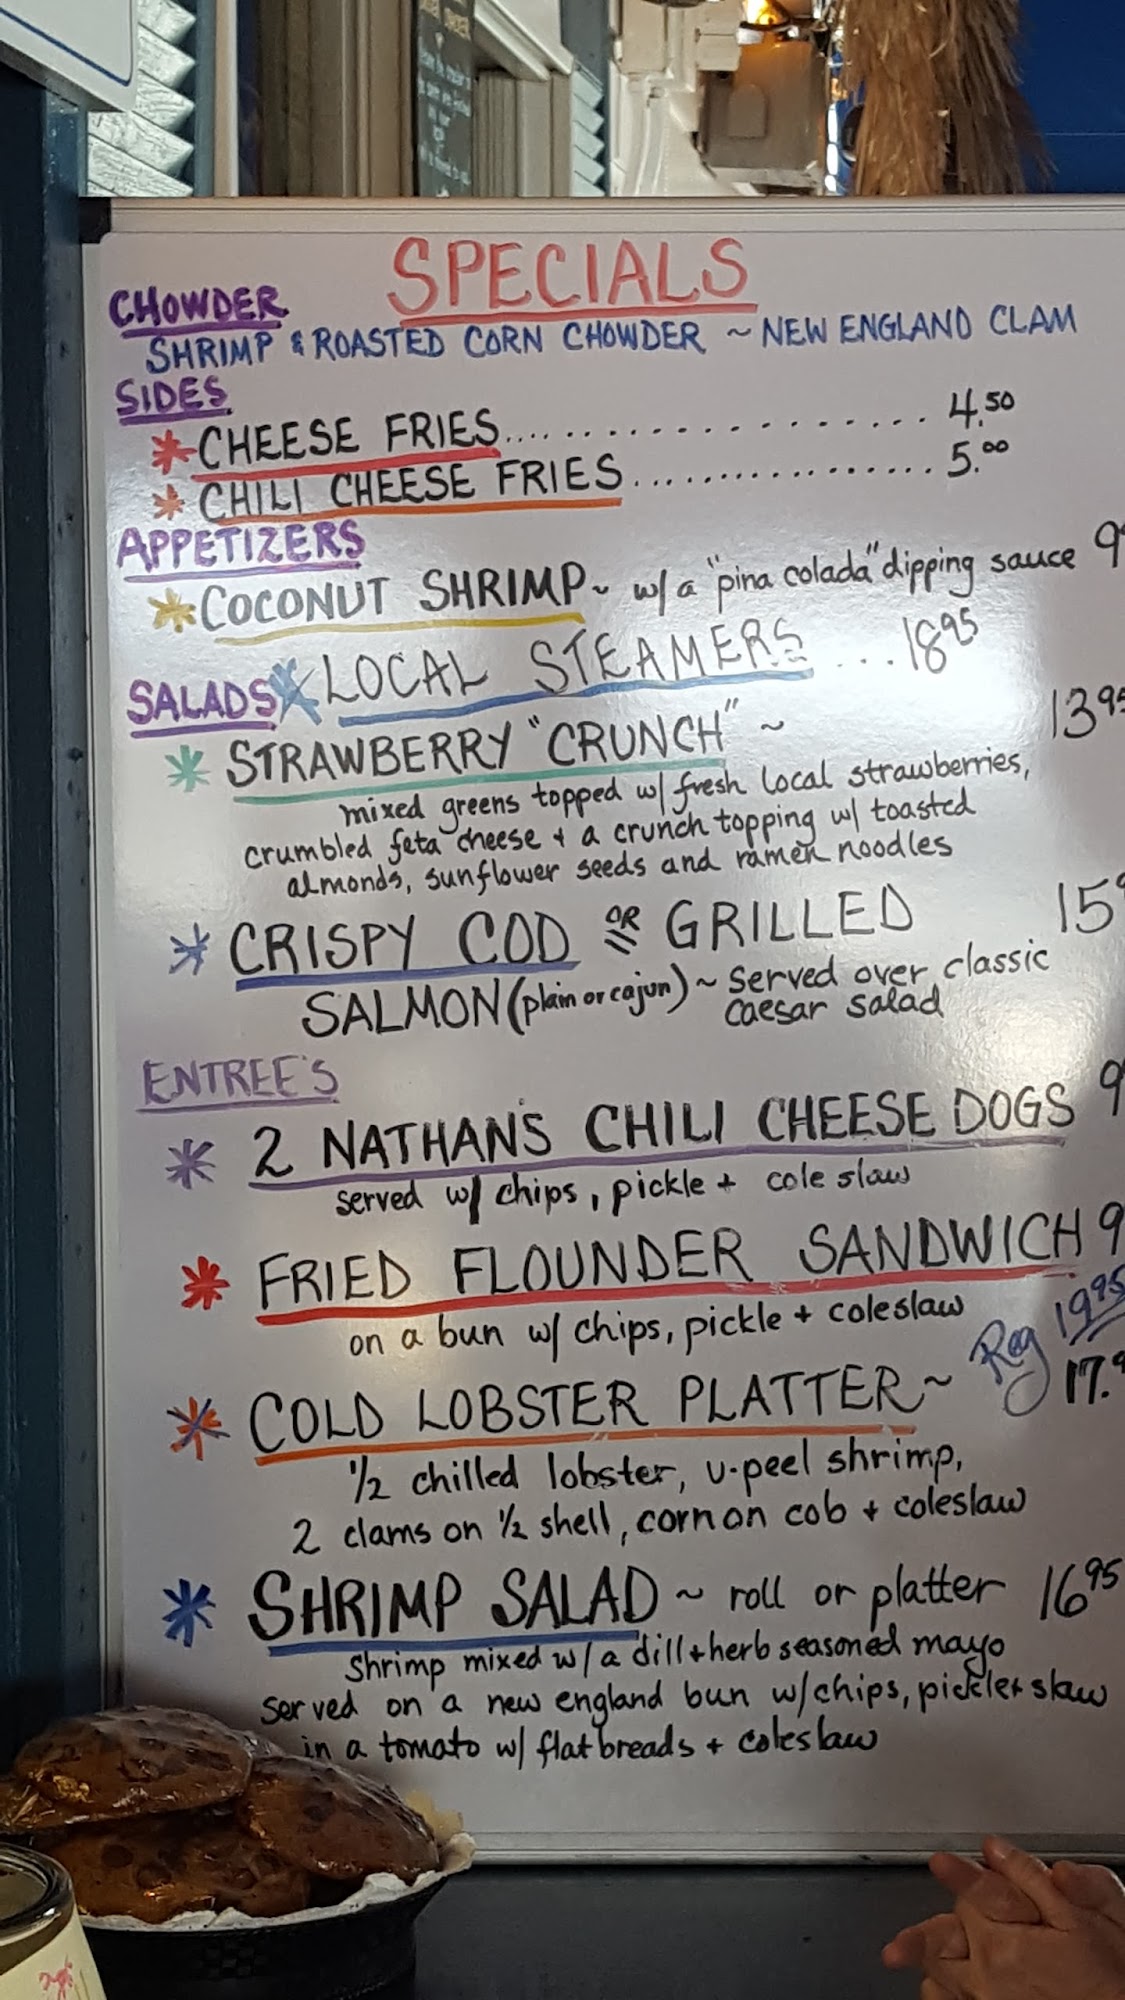 SPECIALS
CHOWDER
SHRIMP & ROASTED CORN CHOWDER ~ NEW ENGLAND CLAM
SIDES
* CHEESE FRIES.................... 4.50
* CHILI CHEESE FRIES................ 5.00
APPETIZERS
* COCONUT SHRIMP ~ w/ a "pina colada" dipping sauce 9
* LOCAL STEAMERS ... 18 95
SALADS
* STRAWBERRY "CRUNCH" ~ 13 95
mixed greens topped w/ fresh local strawberries,
crumbled feta cheese + a crunch topping w/ toasted
almonds, sunflower seeds and ramen noodles
* CRISPY COD OR GRILLED 15
SALMON (plain or cajun) ~ served over classic
caesar salad
ENTREE'S
* 2 NATHAN'S CHILI CHEESE DOGS 9
served w/ chips, pickle + cole slaw
* FRIED FLOUNDER SANDWICH 9
on a bun w/ chips, pickle + coleslaw
Reg 19 95
* COLD LOBSTER PLATTER ~ 17.9
1/2 chilled lobster, u-peel shrimp,
2 clams on 1/2 shell, corn on cob + coleslaw
* SHRIMP SALAD ~ roll or platter 16 95
shrimp mixed w/ a dill + herb seasoned mayo
served on a new england bun w/ chips, pickle + slaw
in a tomato w/ flat breads + coleslaw